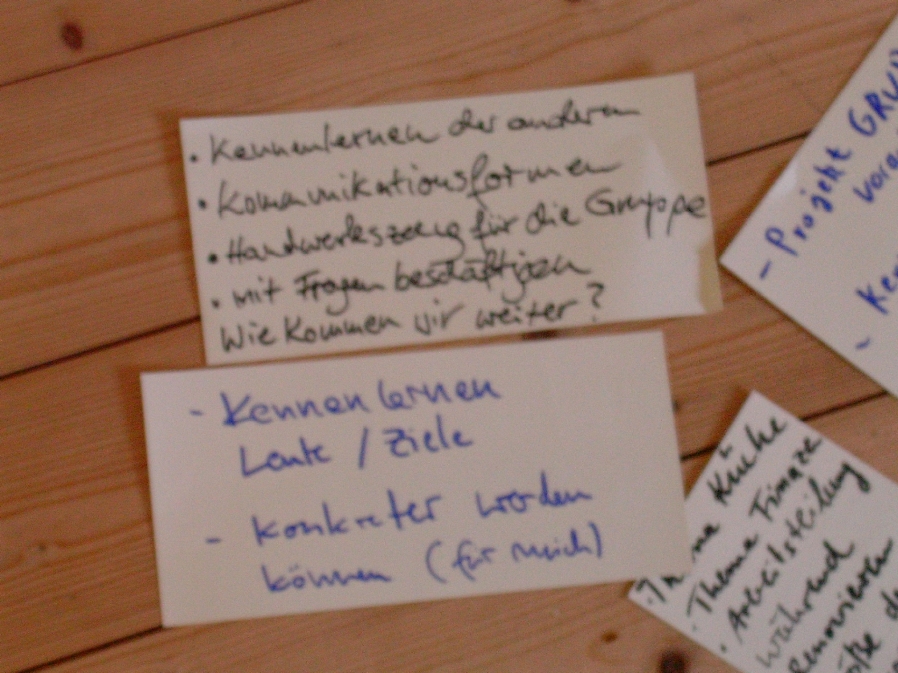 • Kennenlernen der anderen
• Kommunikationsformen
• Handwerkszeug für die Gruppe
• mit Fragen beschäftigen
Wie kommen wir weiter?
- Kennenlernen
Leute / Ziele
- konkreter werden
können (für mich)
- Projekt
-
Küche
• Thema Finanze
• Arbeitsteilung
während
Renovieren